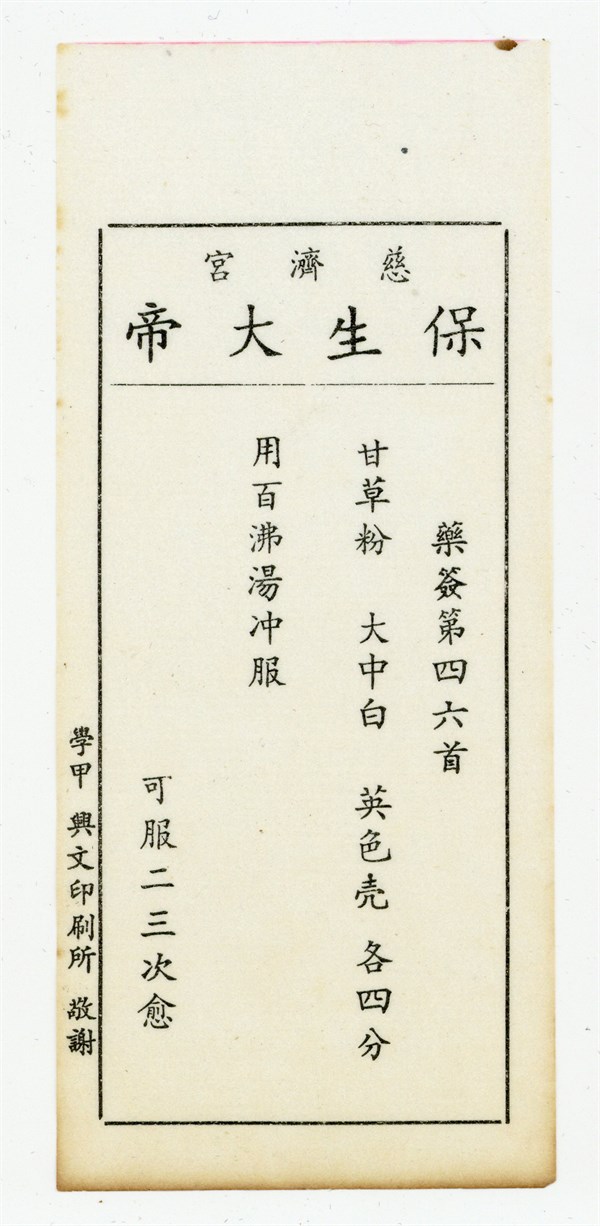 慈濟宮
保生大帝
藥簽第四六首
甘草粉 大中白 英色壳 各四分
用百沸湯冲服
可服二三次愈
學甲 興文印刷所 敬謝